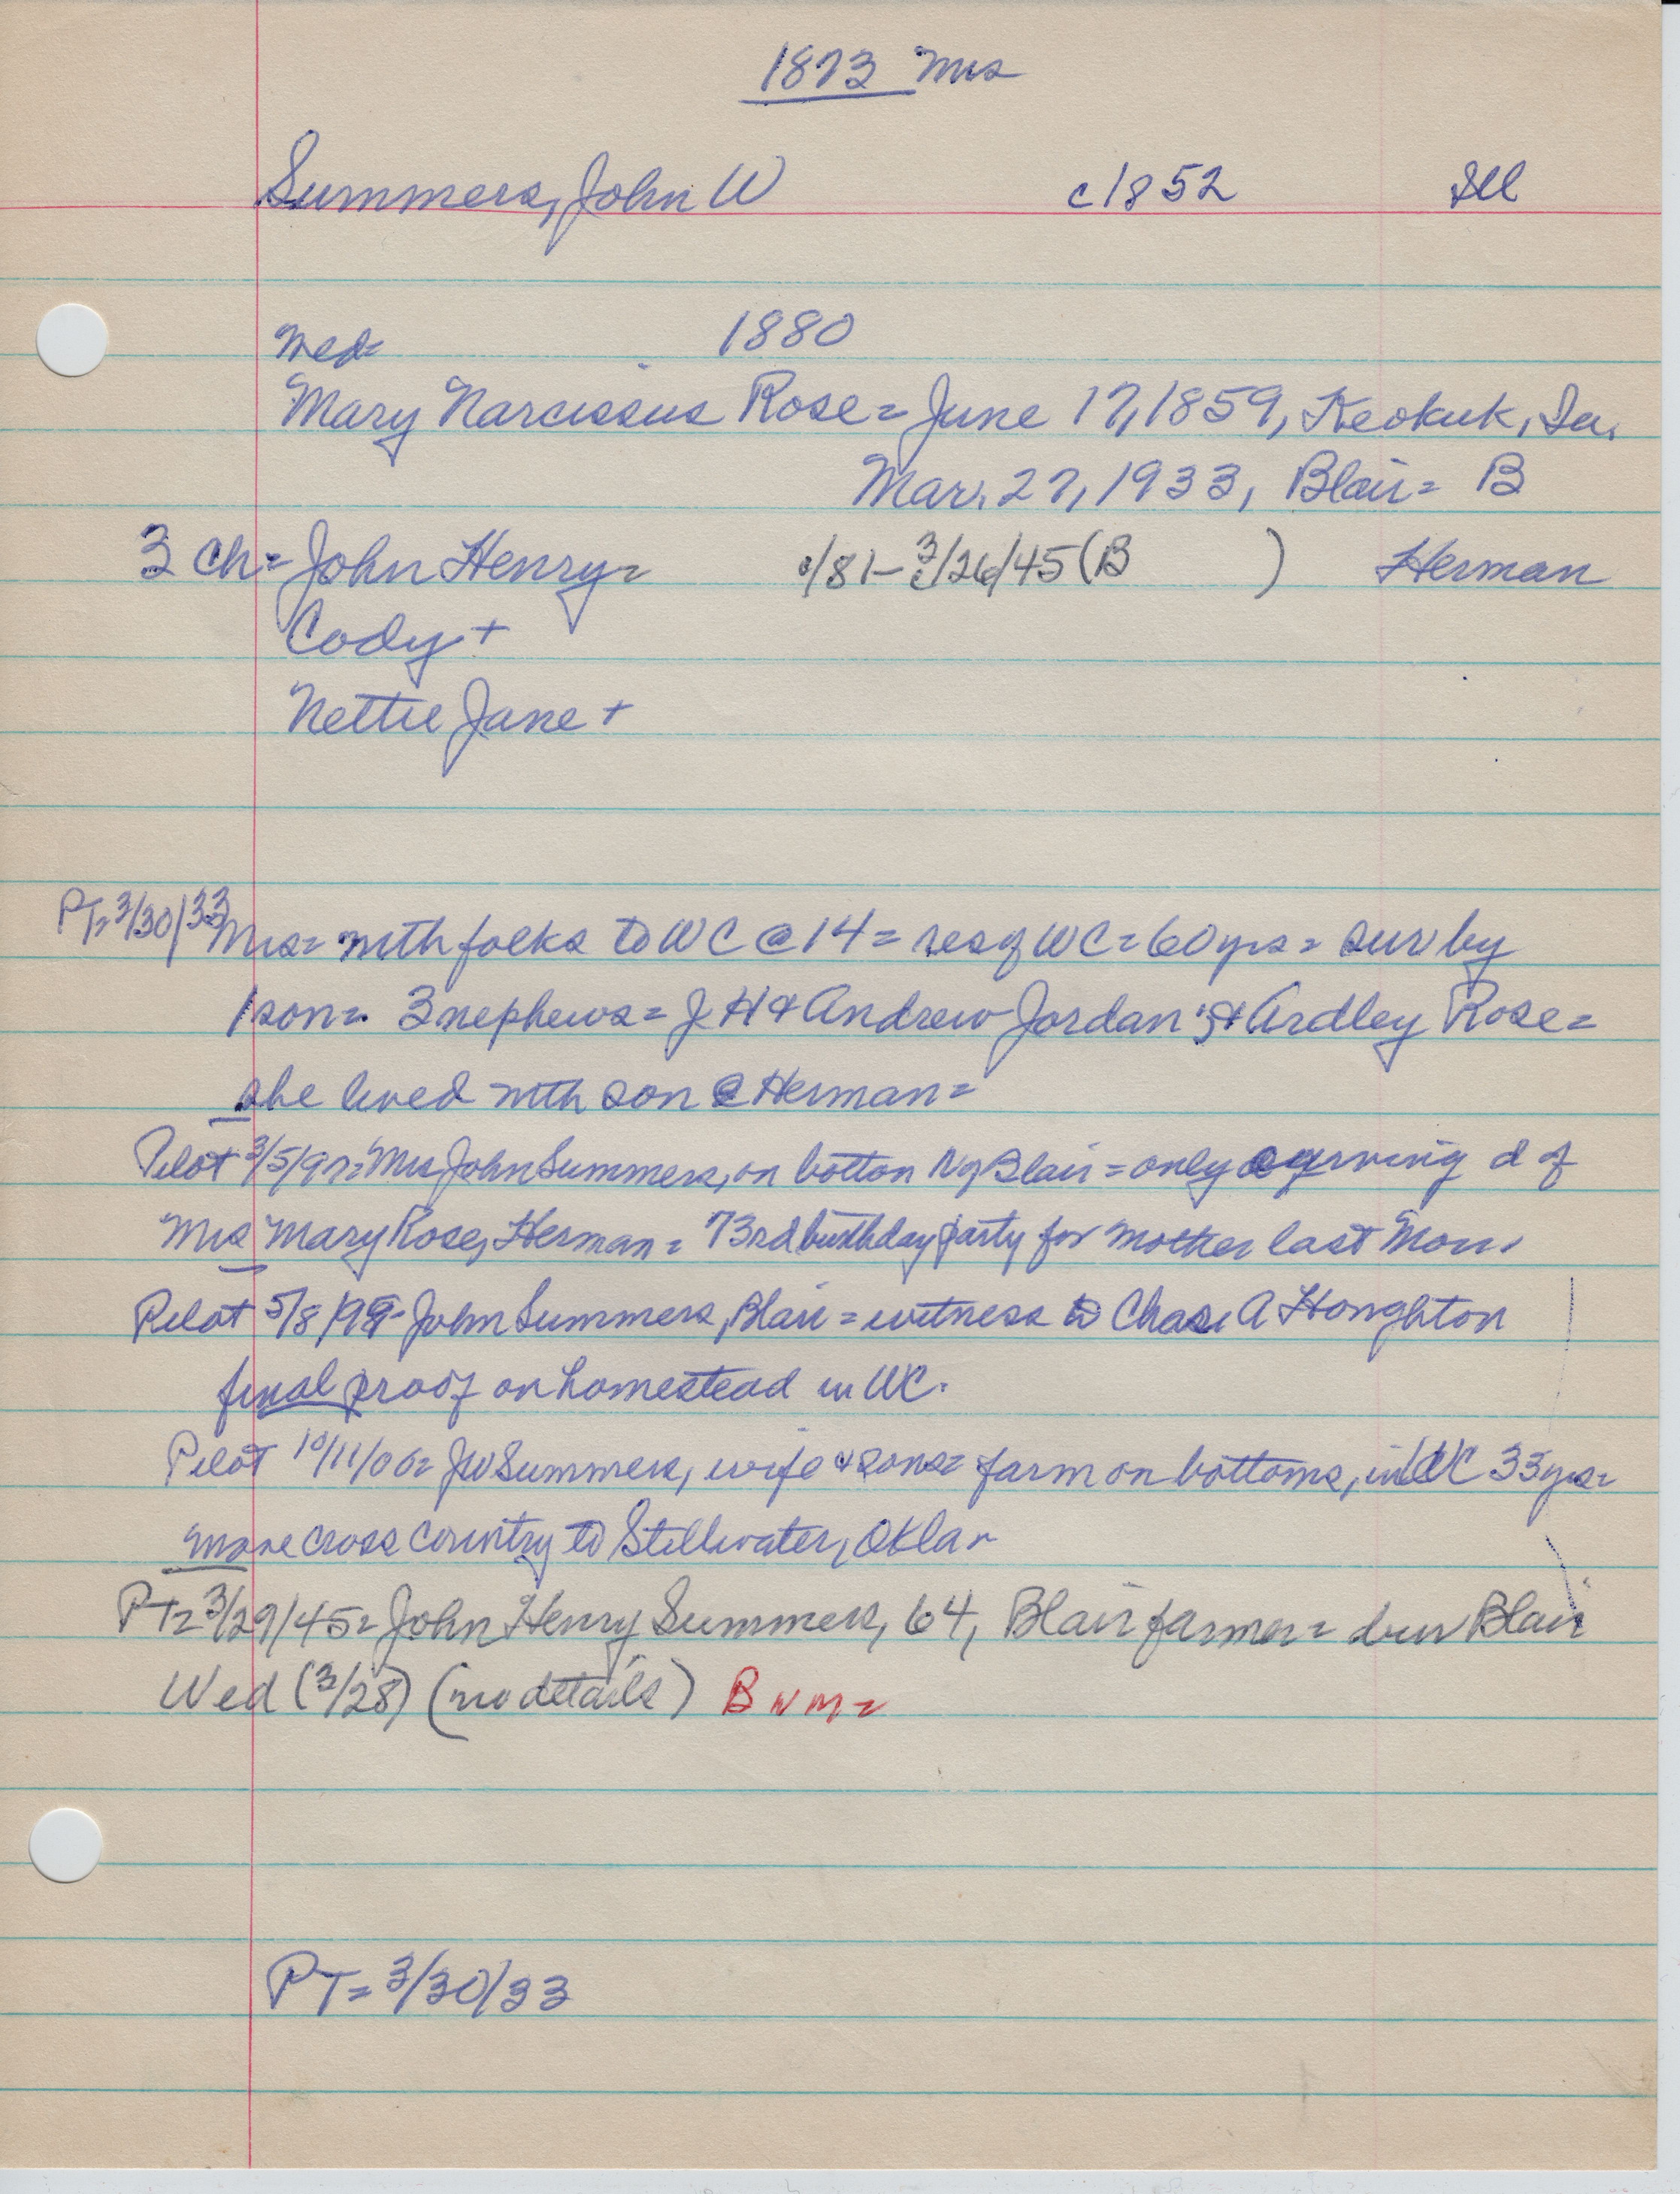 1873 Mrs
Summers, John W c1852 Ill
Wed= 1880
Mary Narcissus Rose= June 17, 1859, Keokuk, Ia.
Mar. 27, 1933, Blair= B
3 ch= John Henry= c/81- 3/26/45 (B ) Herman
Cody +
Nettie Jane +
PT= 3/30/33 Mrs= with folks to WC @ 14= res of WC= 60 yrs= sur by
1 son= 3 nephews= J H & Andrew Jordan & Ardley Rose=
she lived with son @ Herman=
Pilot 3/5/97= Mrs John Summers, on bottom N of Blair= only d of
Mrs Mary Rose, Herman= 73rd birthday party for mother last Mon.
Pilot 5/8/ John Summers, Blair= witness to Chas. A Houghton
final proof on homestead in WC.
Pilot 10/11/06= JW Summers, wife & sons= farm on bottoms, in WC 33 yrs=
move cross country to Stillwater, Okla
PT= 3/29/45= John Henry Summers, 64, Blair farmer= bur Blair
Wed (3/28) (no details) B N M=
PT= 3/30/33